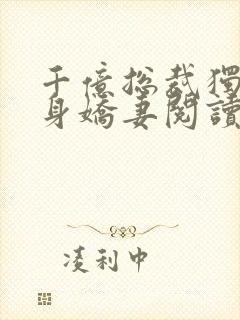 千億總裁獨
身嬌妻閱讀
凌利中